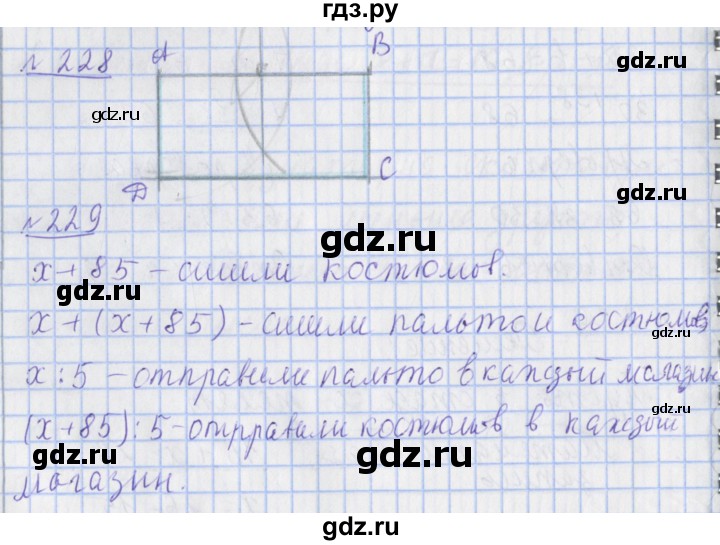 гдз.ру
№ 228
A
B
gdz.ru
gdz.ru
gdz.ru
D
C
№ 229
gdz.ru
х + 85 – сшили костюмов.
х + (х + 85) – сшили пальто и костюмов
gdz.ru
х : 5 – отправили пальто в каждый магазин
gdz.ru
(х + 85) : 5 – отправили костюмов в каждый
gdz.ru
магазин.
gdz.ru
gdz.ru